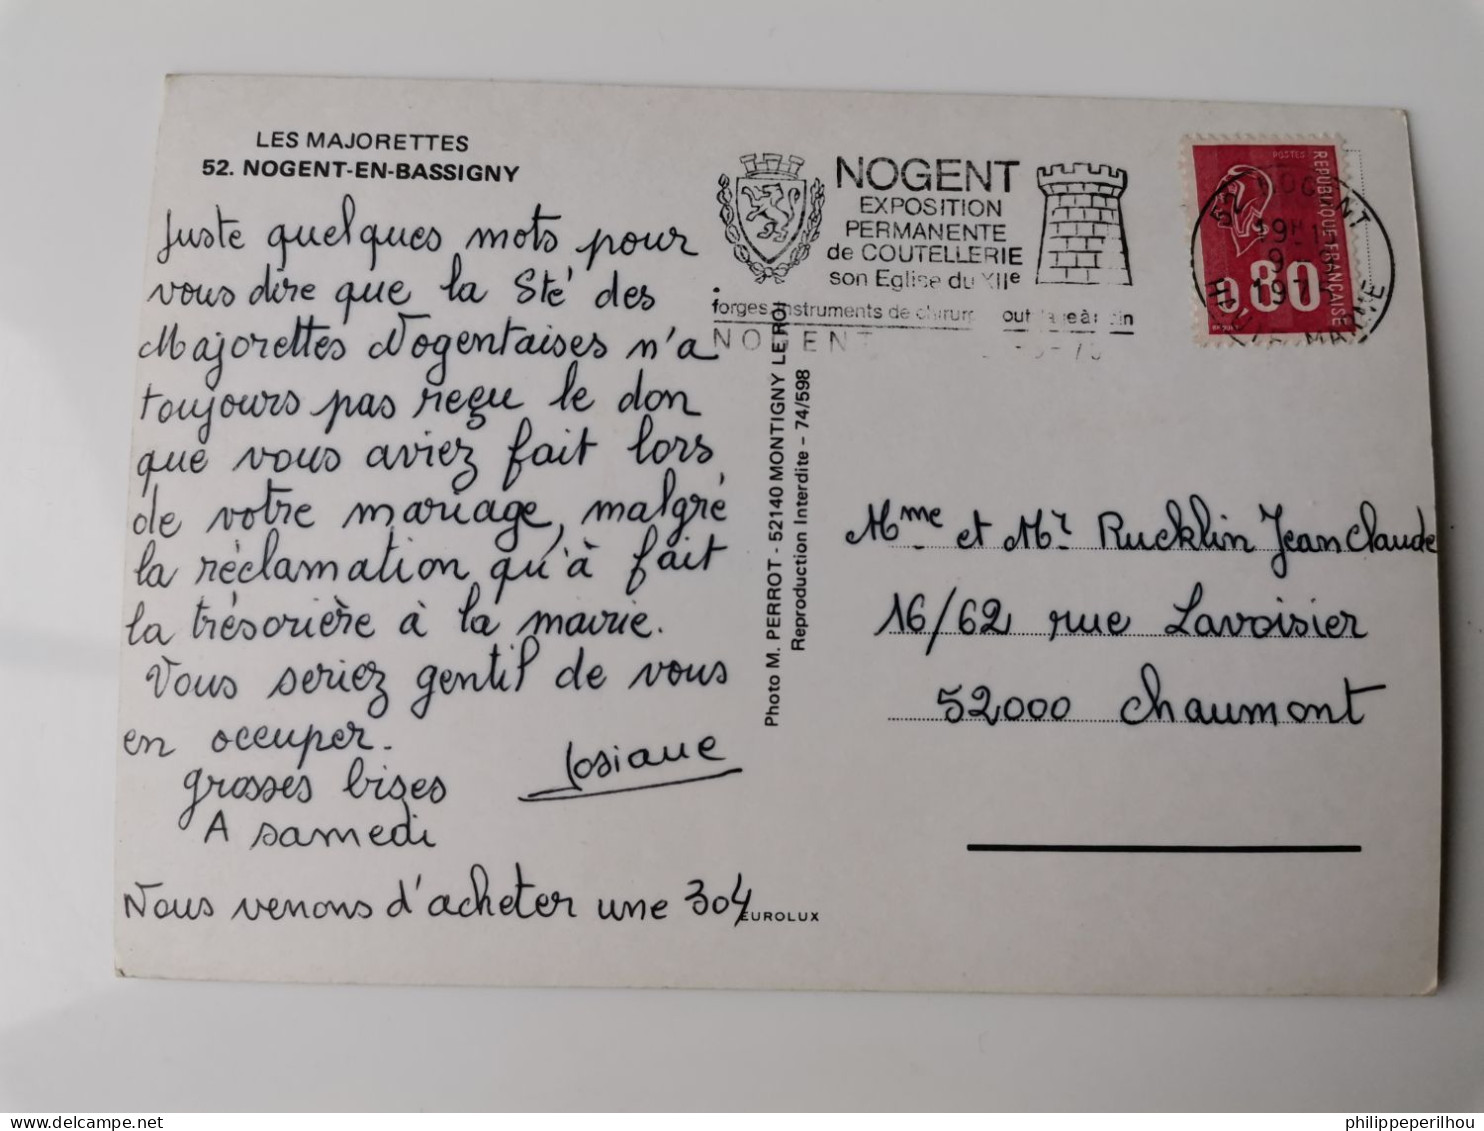 LES MAJORETTES
52. NOGENT-EN-BASSIGNY
Juste quelques mots pour
vous dire que la Sté des
Majorettes Nogentaises n'a
toujours pas reçu le don
que vous aviez fait lors
de votre mariage, malgré
la réclamation qu'à fait
la trésorière à la mairie.
Vous seriez gentil de vous
en occuper.
Josiane
grosses bises
A samedi
Nous venons d'acheter une 304
EUROLUX
Photo M. PERROT - 52140 MONTIGNY LE ROI
Reproduction Interdite - 74/598
NOGENT
EXPOSITION
PERMANENTE
de COUTELLERIE
son Eglise du XIIe
forges instruments de
NOGENT
POSTES
REPUBLIQUE FRANÇAISE
0,80
52 NOGENT
19H
9
197
HTE MARNE
Mme et Mr Rucklin Jean Claude
16/62 rue Lavoisier
52000 Chaumont
philippeperilhou